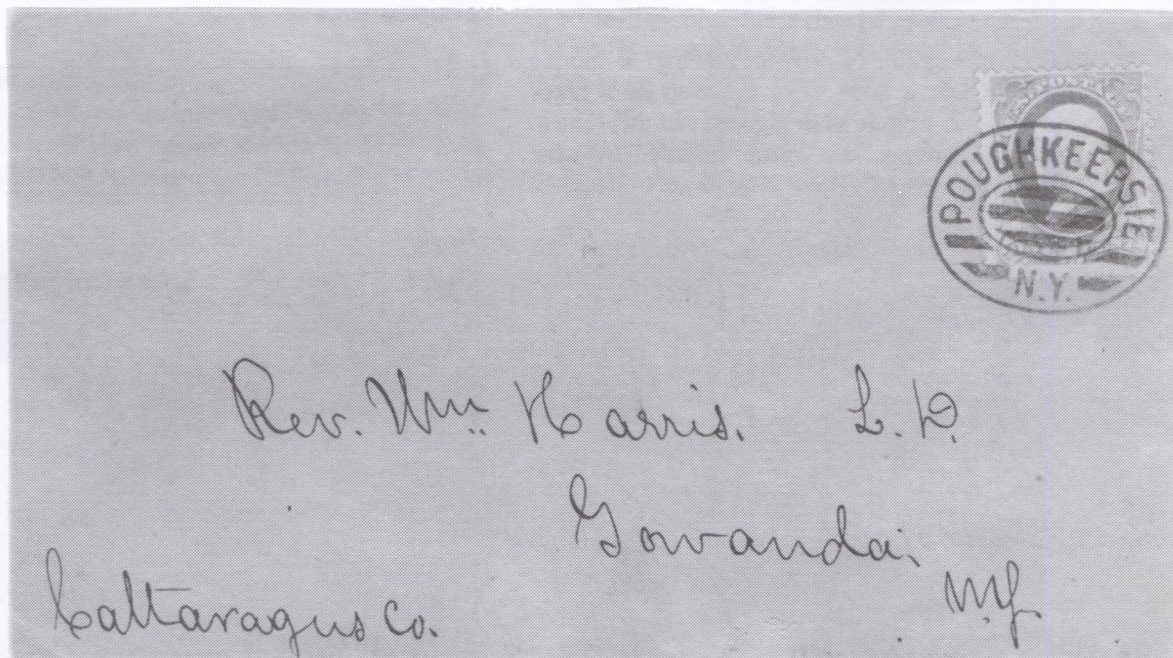 POUGHKEEPSIE
N.Y.
Rev. Wm. Harris. L. D.
Gowanda.
Cattaragus Co.
N.Y.